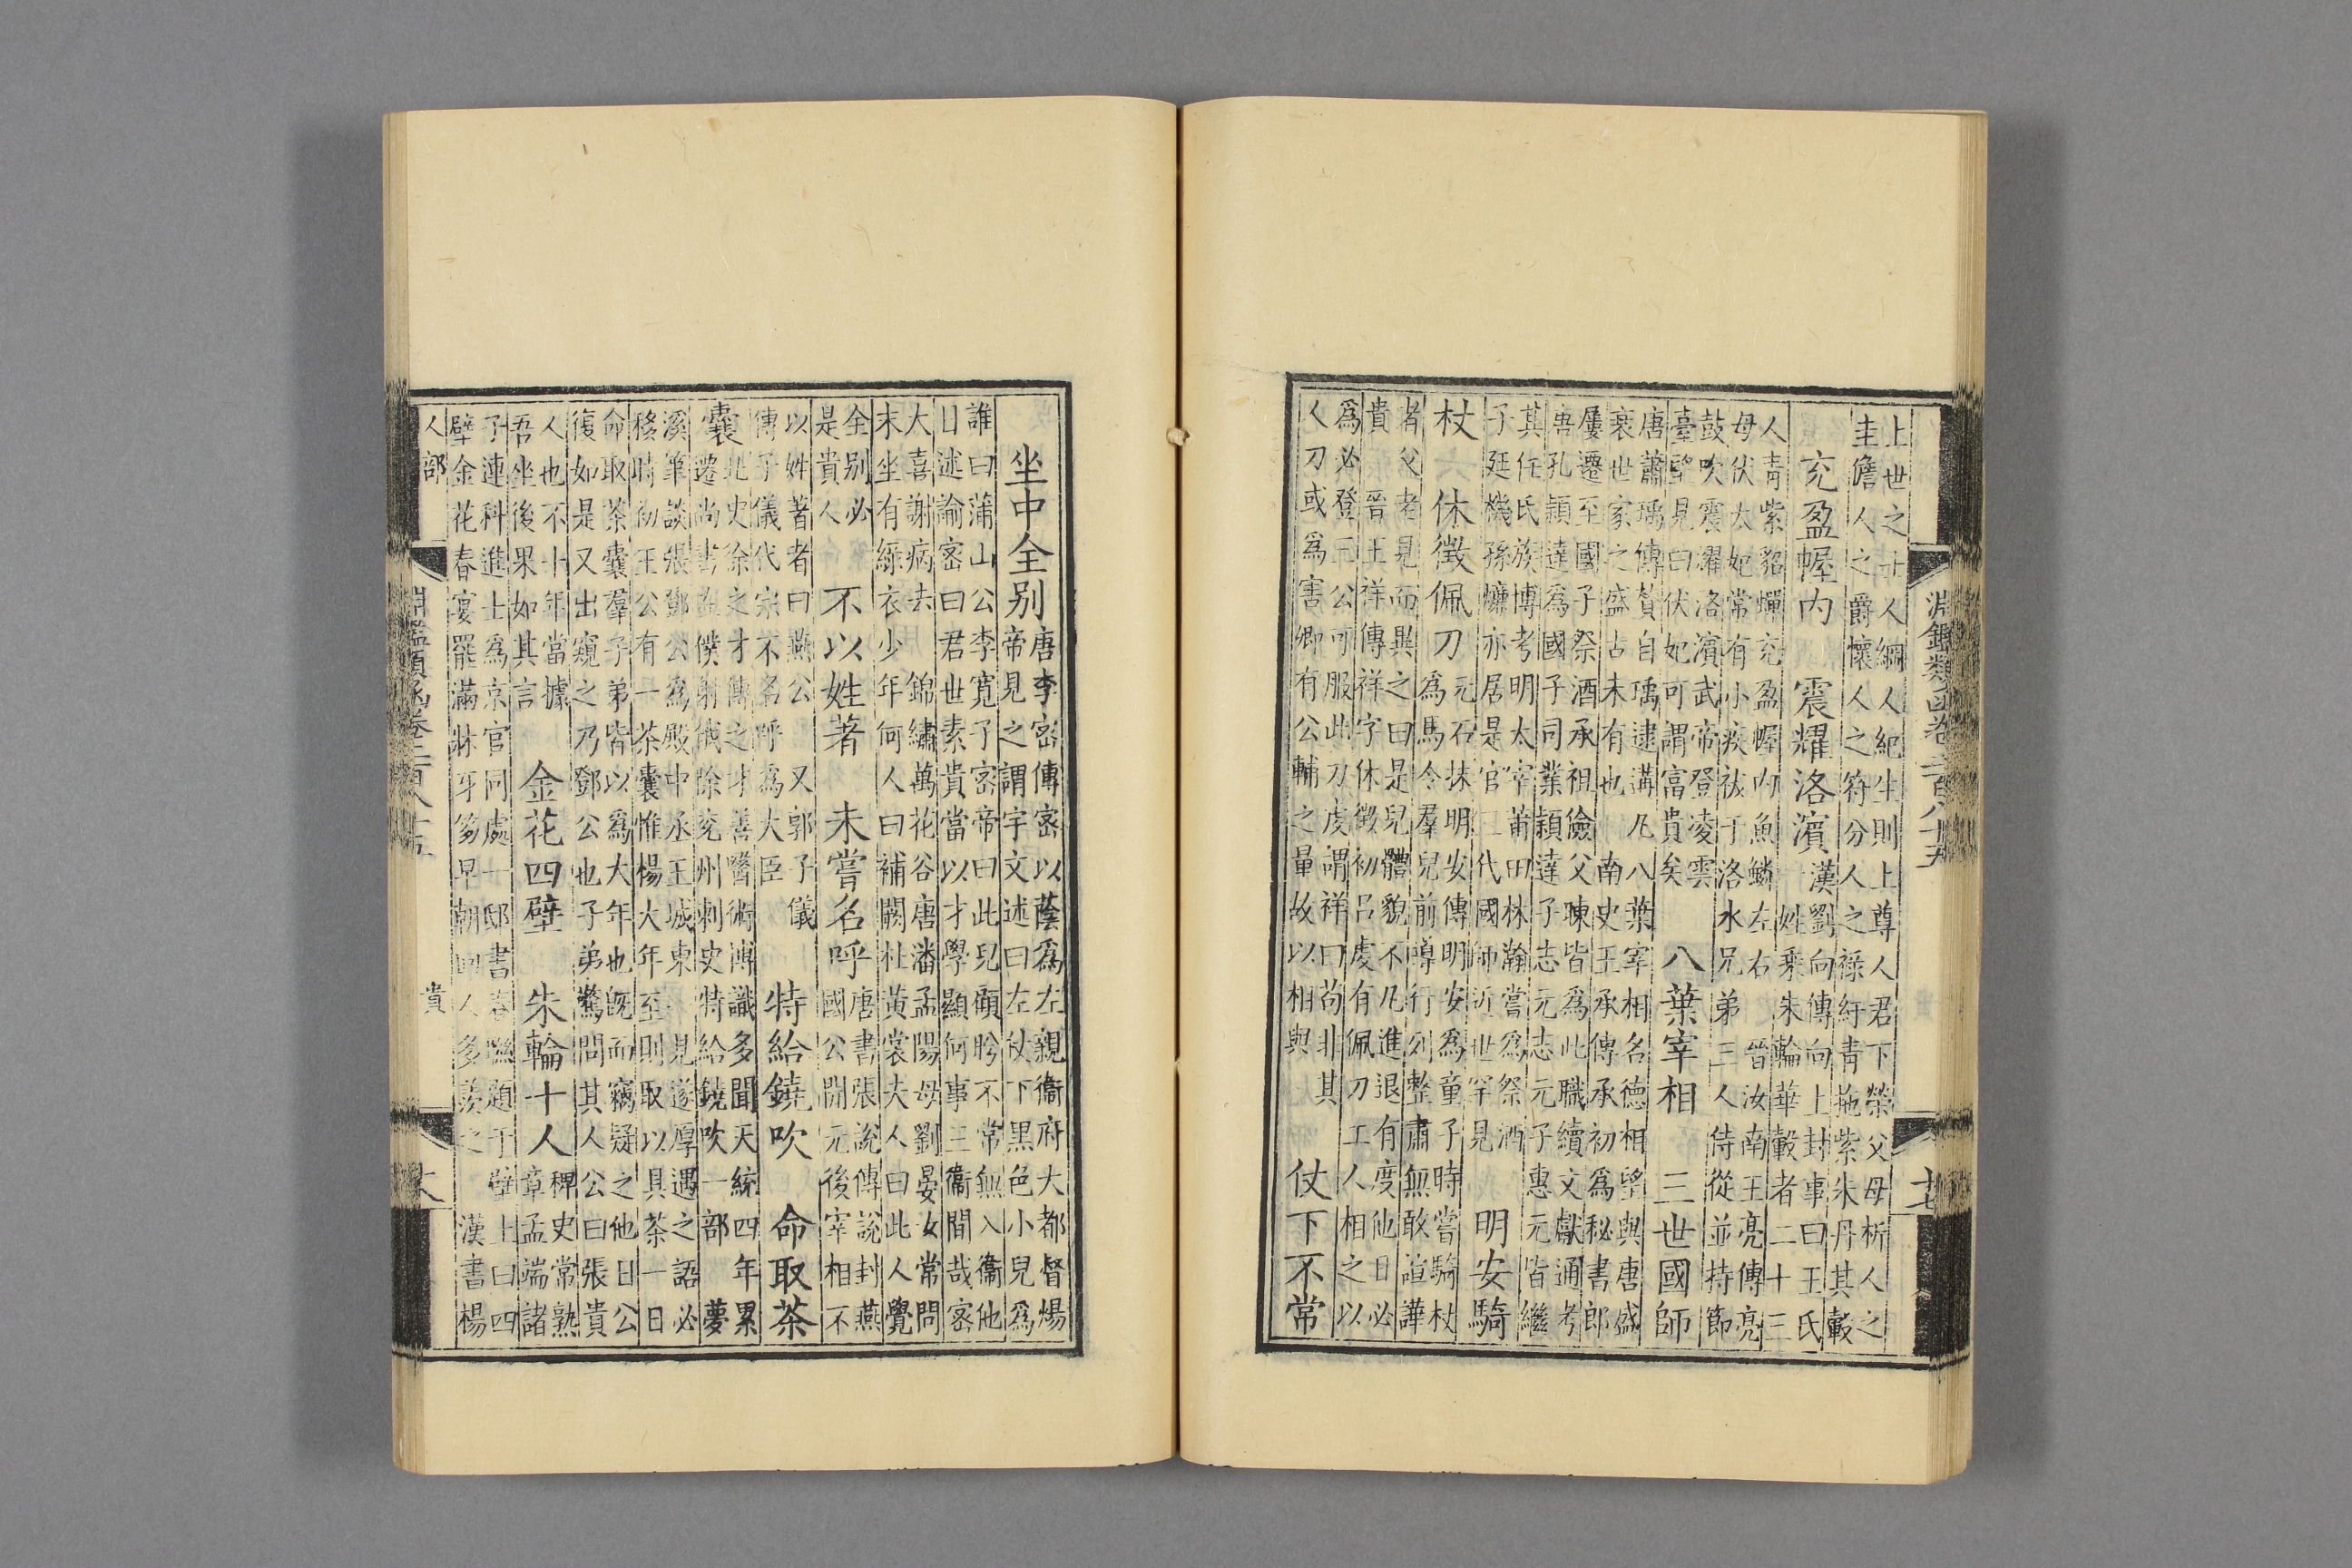 淵鑑類函卷二百八十五
七
上世之士人綱人紀生則上尊人君下榮父母析人之
圭儋人之爵懷人之符分人之祿紆青拖紫朱丹其轂
充盈幄内 震耀洛濱
漢劉向傳向上封事曰王氏
一姓乗朱輪華轂者二十三
人青紫貂蟬充盈幄内魚鱗左右 晉汝南王亮傳亮
母伏太妃常有小疾祓于洛水兄弟三人侍從並持節
鼓吹震耀洛濱武帝登凌雲
臺望見曰伏妃可謂富貴矣
八葉宰相 三世國師
唐蕭瑀傳贊自瑀逮遘凡八葉宰相名德相望與唐盛
衰世家之盛古未有也 南史王承傳承初爲秘書郎
屢遷至國子祭酒承祖儉父暕皆爲此職 續文獻通考
唐孔穎達爲國子司業穎達子志元志元子惠元皆繼
其任氏族博考明太宰莆田林瀚嘗爲祭酒
子廷機孫㷆亦居是官三代國師近世罕見
明安騎
杖 休徵佩刀
元石抹明安傳明安爲童子時嘗騎杖
爲馬令羣兒前導行列整肅無敢諠譁
者父老見而異之曰是兒體貌不凡進退有度他日必
貴 晉王祥傳祥字休徵初呂虔有佩刀工人相之以
爲必登三公可服此刀虔謂祥曰苟非其
人刀或爲害卿有公輔之量故以相與
仗下不常
坐中全别
唐李密傳密以蔭爲左親衞府大都督煬
帝見之謂宇文述曰左仗下黑色小兒爲
誰曰蒲山公李寬子密帝曰此兒顧盻不常無入衞他
日述諭密曰君世素貴當以才學顯何事三衞間哉密
大喜謝病去 錦繡萬花谷唐潘孟陽母劉晏女常問
末坐有綠衣少年何人曰補闕杜黃裳夫人曰此人覺
全别必
是貴人
不以姓著 未嘗名呼
唐書張說傳說封燕
國公開元後宰相不
以姓著者曰燕公 又郭子儀
傳子儀代宗不名呼爲大臣
特給鐃吹 命取茶
囊
北史徐之才傳之才善醫術博識多聞天統四年累
遷尚書左僕射俄除兗州刺史特給鐃吹一部 夢
溪筆談張鄧公爲殿中丞王城東一見遂厚遇之語必
移時初王公有一茶囊惟楊大年至則取以具茶一日
命取茶囊羣子弟皆以爲大年也既而竊疑之他日公
復如是又出窺之乃鄧公也子弟驚問其人公曰張貴
人也不十年當據
吾坐後果如其言
金花四壁 朱輪十人
稗史常熟
章孟端諸
子連科進士爲京官同處一邸書春聯題于壁上曰四
壁金花春宴罷滿牀牙笏早朝回人多羨之 漢書楊
人部
貴
淵鑑類函卷二百八十五